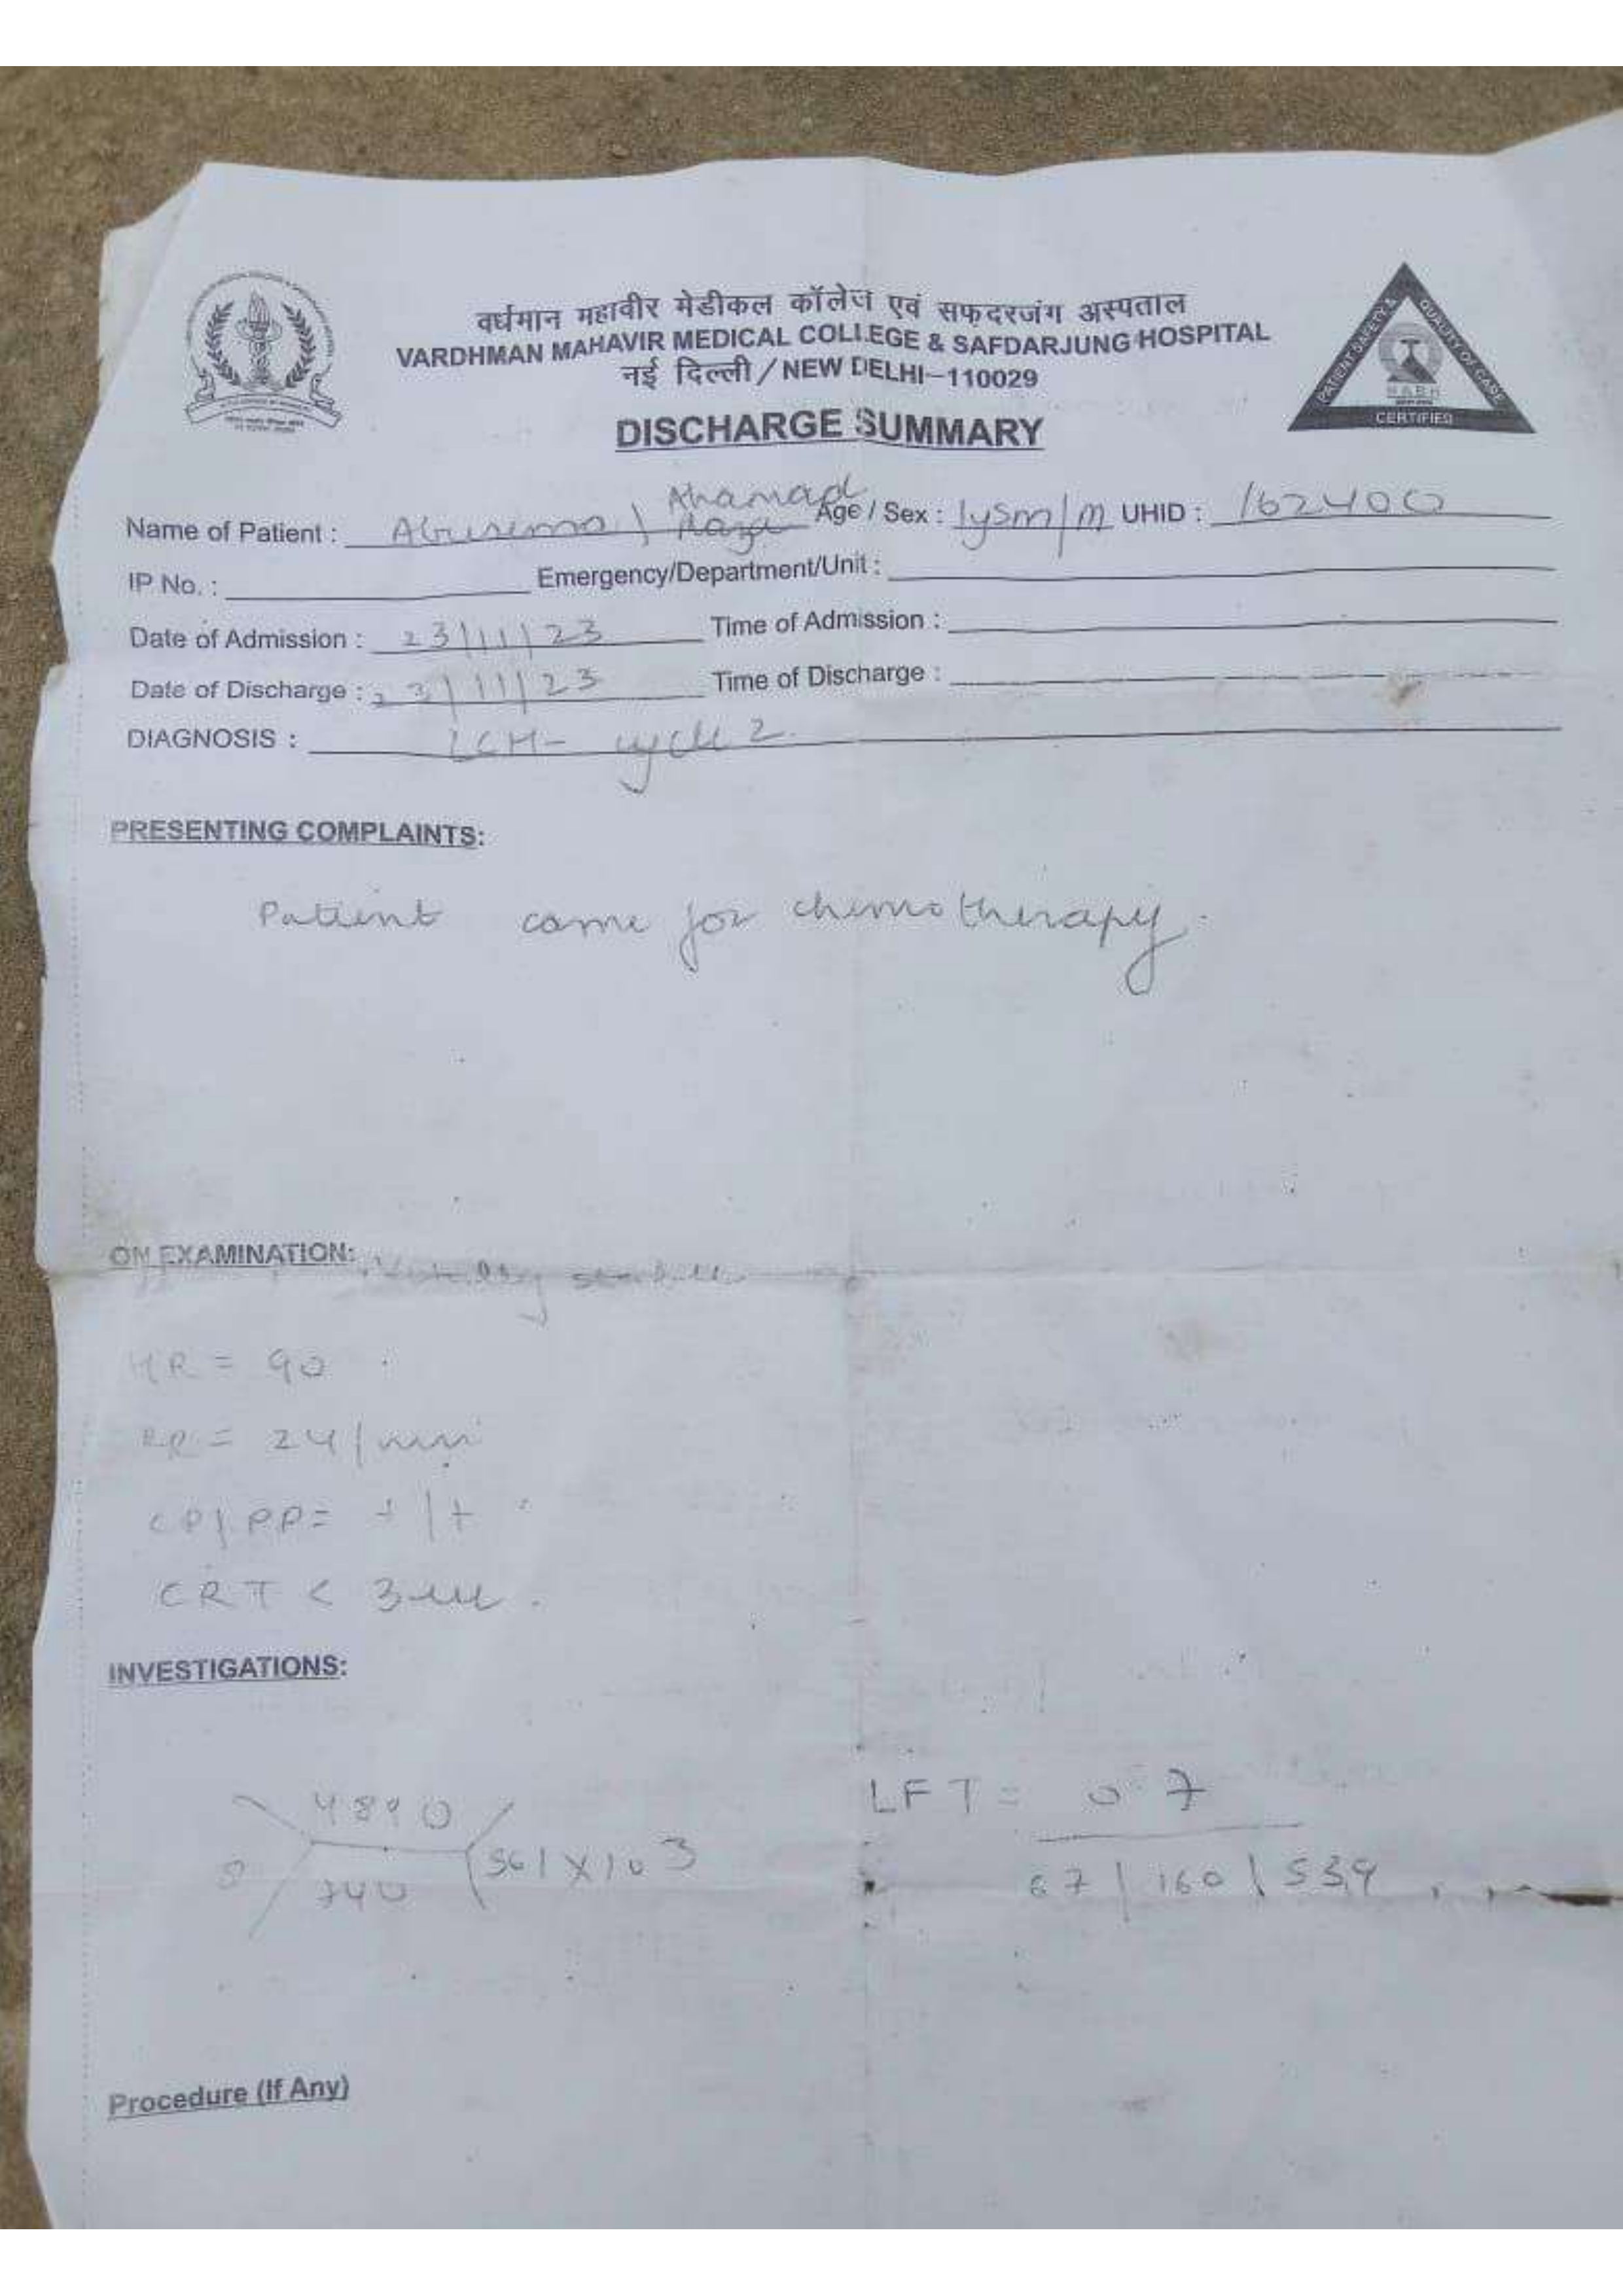 वर्धमान महावीर मेडीकल कॉलेज एवं सफदरजंग अस्पताल
VARDHMAN MAHAVIR MEDICAL COLLEGE & SAFDARJUNG HOSPITAL
नई दिल्ली / NEW DELHI-110029
PATIENT SAFETY & QUALITY OF CARE
NABH
CERTIFIED
DISCHARGE SUMMARY
Name of Patient : Ahamad Raza Age / Sex : 1y5m/m UHID : 162400
IP No. : Emergency/Department/Unit :
Date of Admission : 23/11/23 Time of Admission :
Date of Discharge : 23/11/23 Time of Discharge :
DIAGNOSIS : LCH- cycle 2
PRESENTING COMPLAINTS:
Patient came for chemotherapy.
ON EXAMINATION: stable
HR = 90
RR = 24/min
CP/PP= +/+
CRT < 3sec.
INVESTIGATIONS:
4890
561 X 103
LFT = 0.7
67 / 160 / 539
Procedure (If Any)